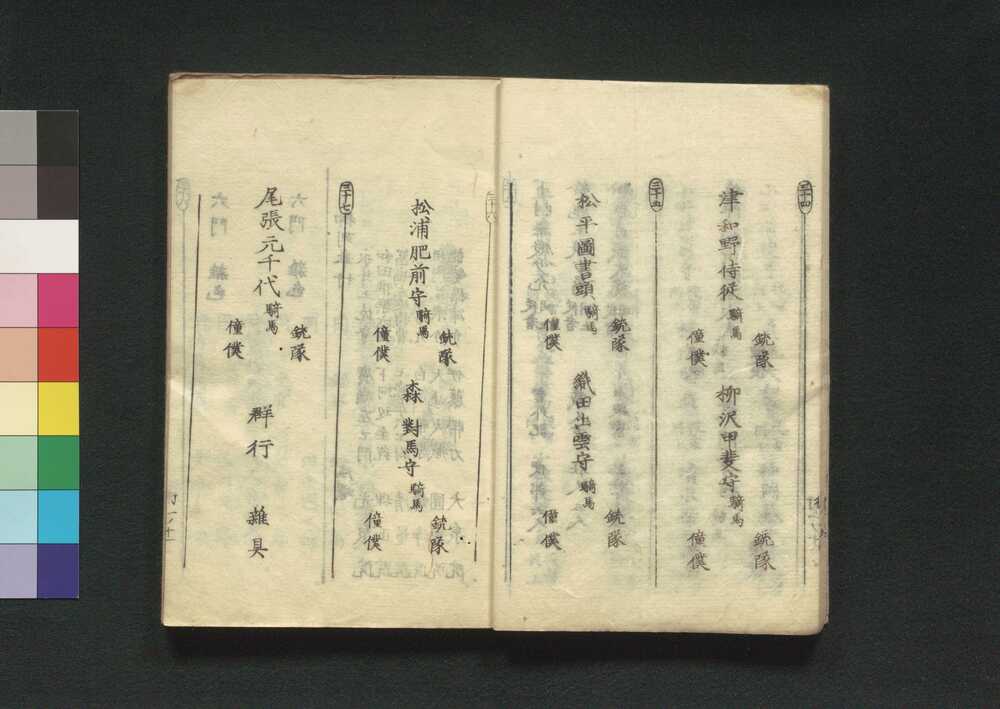 三十四
津和野侍従 騎馬
銃隊
僮僕
柳沢甲斐守 騎馬
銃隊
僮僕
三十五
松平圖書頭 騎馬
銃隊
僮僕
織田出雲守 騎馬
銃隊
僮僕
三十六
松浦肥前守 騎馬
銃隊
僮僕
森對馬守 騎馬
銃隊
僮僕
三十七
尾張元千代 騎馬
銃隊
僮僕
群行
雜具